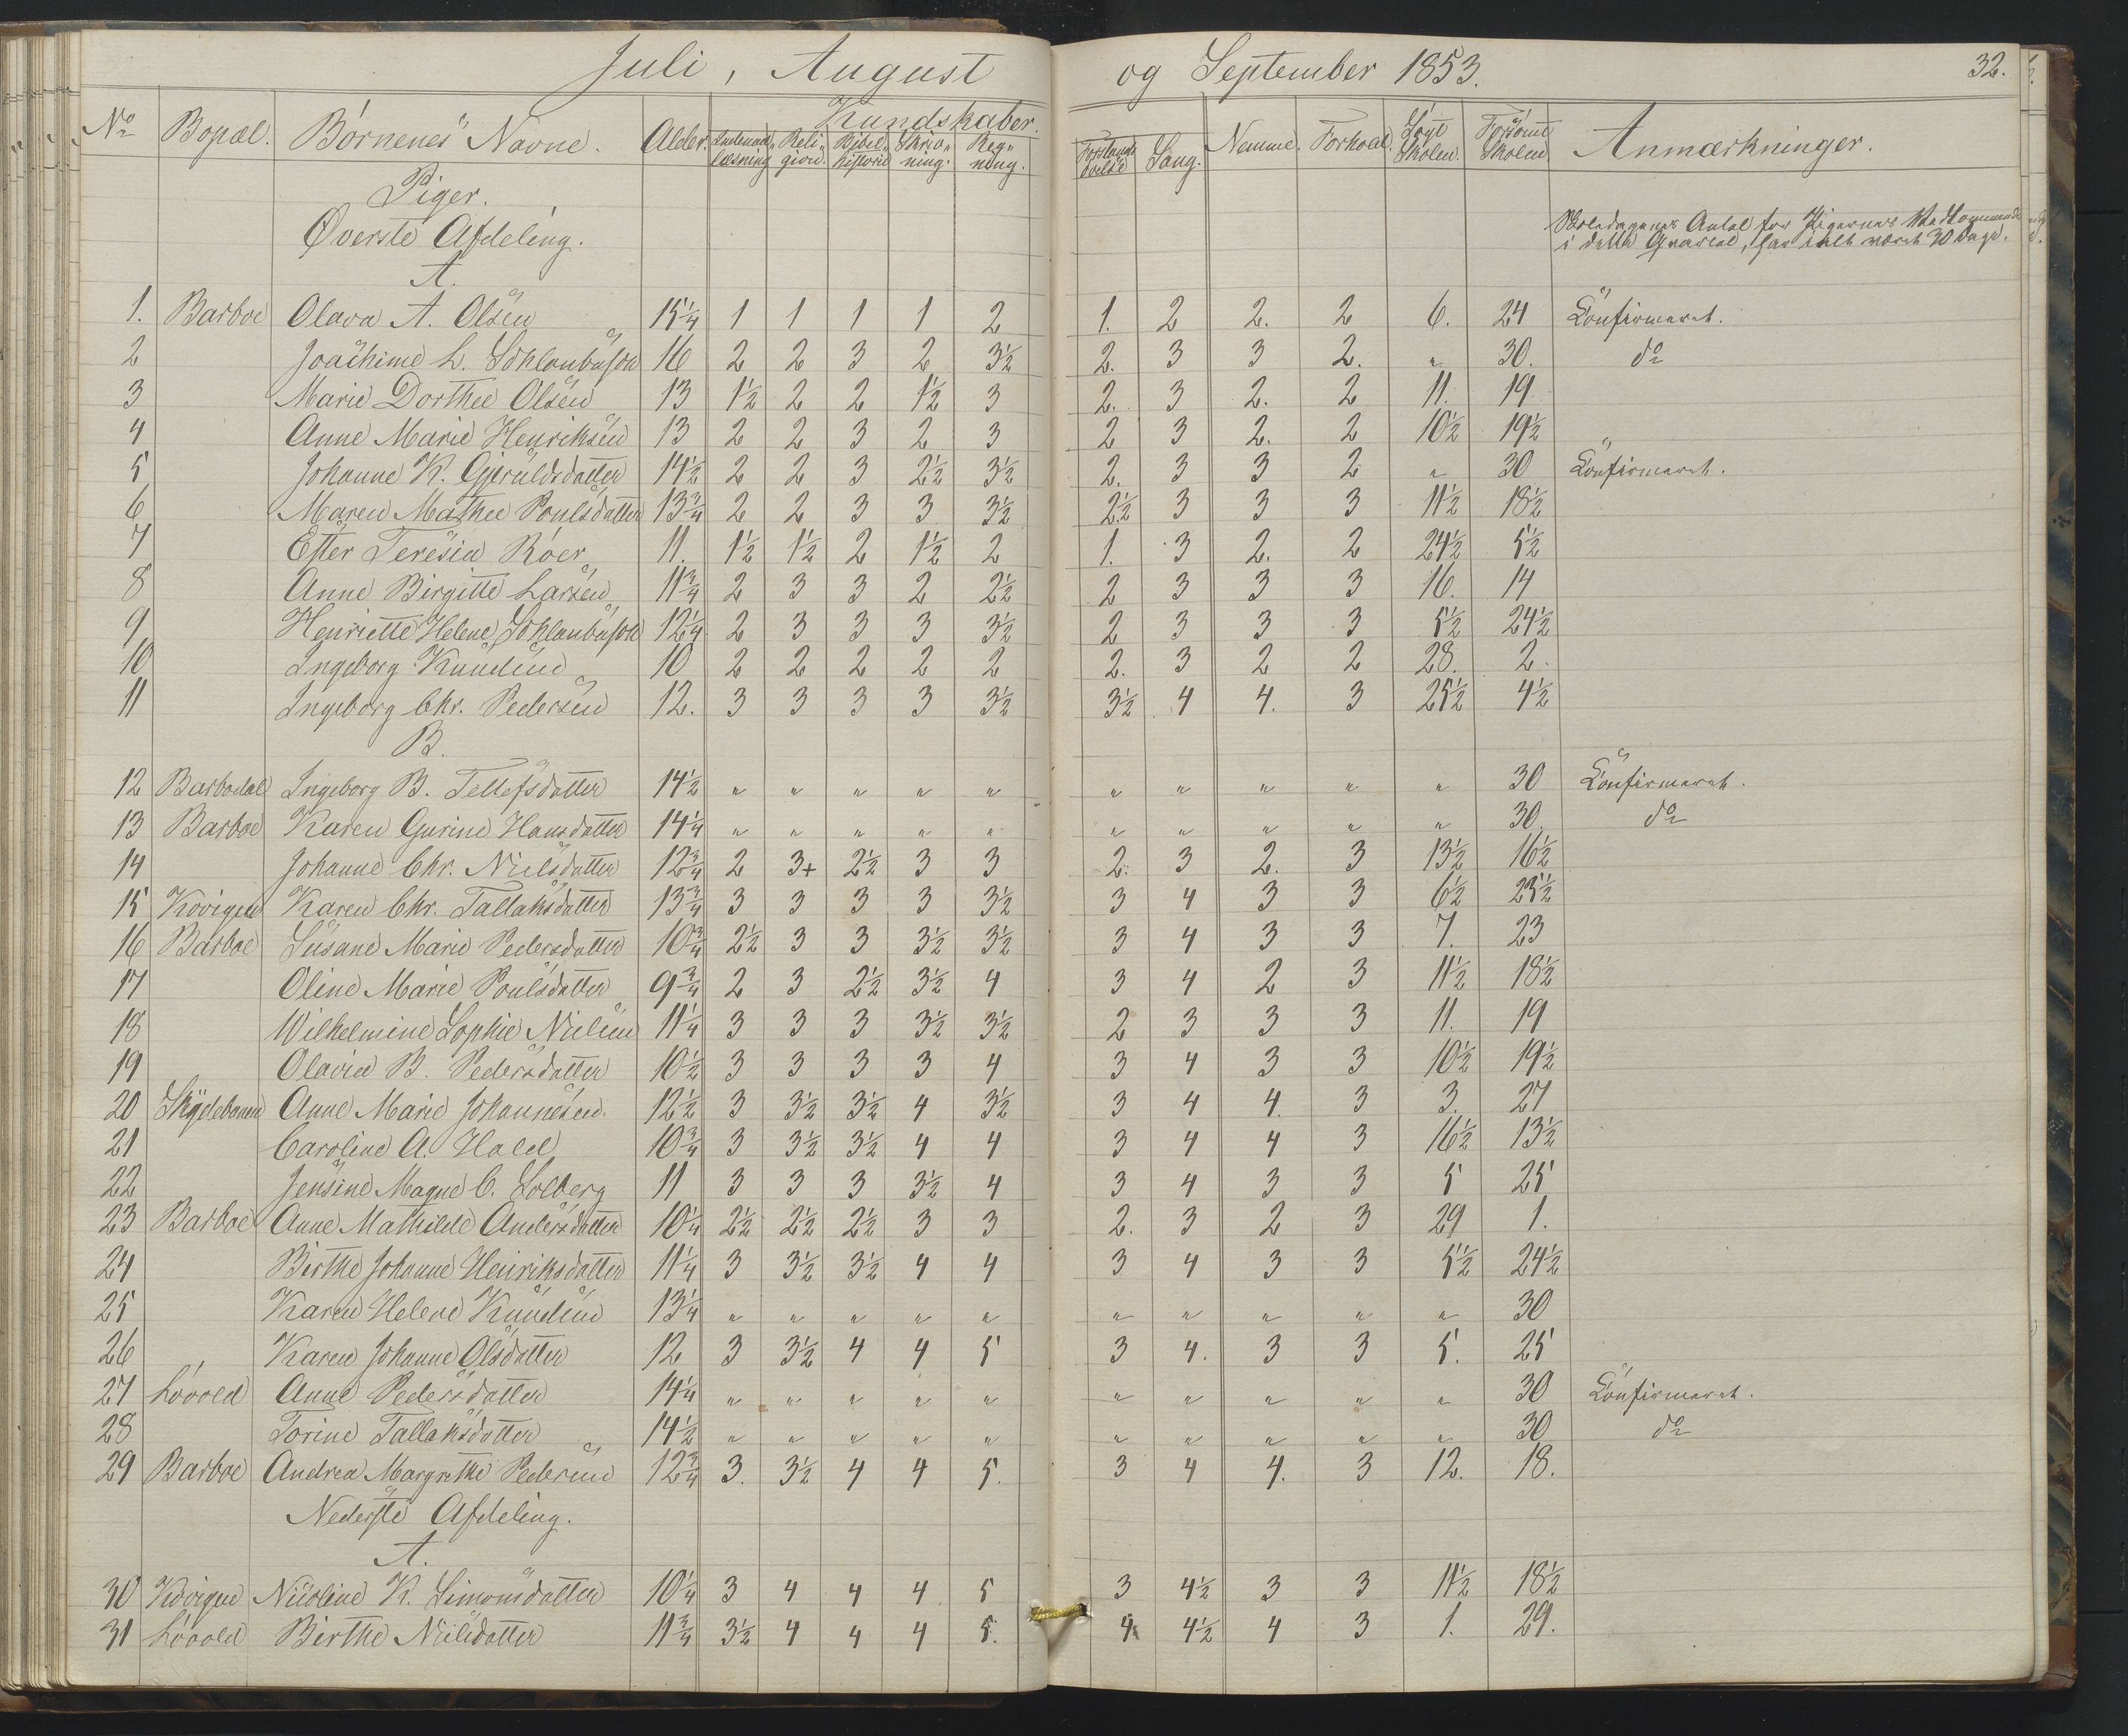 Juli, August og September 1853. 32.
No Bopæl. Børnenes Navne. Alder. Kundskaber. Indenadlæsning Religion. Bibelhistorie Skrivning. Regning. Forstandsøvelse Sang. Nemme. Forhold. Søgt Skolen. Forsømt Skolen. Anmærkninger.
Piger.
Øverste Afdeling.
Skoledagenes Antal for Pigernes Vedkommende
i dette Qvartal, har i alt været 30 Dage.
A.
1. Barboe Olava A. Olsen 15 1/4 1 1 1 1 2 1. 2 2. 2 6. 24 Confirmeret.
2 Joachime L. Schlanbusch 16 2 2 3 2 3½ 2. 3 3 2. " 30. do
3 Marie Dorthee Olsen 13 1½ 2 2 1½ 3 2. 3 2. 2 11. 19
4 Anne Marie Henriksen 13 2 2 3 2 3 2 3 2. 2 10½ 19½
5 Johanne K. Gjeruldsdatter 14½ 2 2 3 2½ 3½ 2. 3 3 2 " 30 Confirmeret.
6 Maren Mathee Poulsdatter 13¾ 2 2 3 3 3½ 2½ 3 3 3 11½ 18½
7 Ester Teresia Röer 11. 1½ 1½ 2 1½ 2 1. 3 2. 2 24½ 5½
8 Anne Birgitte Larsen 11¾ 2 3 3 2 2½ 2 3 3 3 16. 14
9 Henriette Helene Schlanbusch 12¼ 2 3 3 3 3½ 2 3 3 3 5½ 24½
10 Ingeborg Knudsen 10 2 2 2 2 2 2. 3 2 2 28. 2.
11 Ingeborg Chr. Pedersen 12. 3 3 3 3 3½ 3½ 4 4. 3 25½ 4½
B.
12 Barbodal Ingeborg B. Tellefsdatter 14½ " " " " " " " " " " 30 Confirmeret.
13 Barboe Karen Gurine Hansdatter 14¼ " " " " " " " " " " 30. do
14 Johanne Chr. Nielsdatter 12¾ 2 3+ 2½ 3 3 2. 3 2. 3 13½ 16½
15 Kövigen Karen Chr. Tallaksdatter 13¾ 3 3 3 3 3½ 3 4 3 3 6½ 23½
16 Barboe Susane Marie Pedersdatter 10¾ 2½ 3 3 3½ 3½ 3 4 3 3 7. 23
17 Oline Marie Poulsdatter 9¾ 2 3 2½ 3½ 4 3 4 2 3 11½ 18½
18 Wilhelmine Sophie Nielsen 11¼ 3 3 3 3½ 3½ 2 3 3 3 11. 19
19 Olavia B. Pedersdatter 10½ 3 3 3 3 4 3 4 3 3 10½ 19½
20 Skydebanen Anne Marie Johannesen. 12½ 3 3½ 3½ 4 3½ 3 4 4. 3 3. 27
21 Caroline A. Hald 10¾ 3 3½ 3½ 4 4 3 4 4 3 16½ 13½
22 Jensine Magne C. Solberg 11 3 3 3 3½ 4 3 4 3 3 5 25
23 Barboe Anne Mathilde Andersdatter 10¼ 2½ 2½ 2½ 3 3 2. 3 2 3 29 1.
24 Birthe Johanne Henriksdatter 11¼ 3 3½ 3½ 4 4 3 4 3 3 5½ 24½
25 Karen Helene Knudsen 13¼ " " " " " " " " " " 30
26 Karen Johanne Olsdatter 12 3 3½ 4 4 5 3 4. 3 3 5. 25
27 Lövold Anne Pedersdatter 14¼ " " " " " " " " " " 30 Confirmeret.
28 Torine Tallaksdatter 14½ " " " " " " " " " " 30 do
29 Barboe Andrea Margrethe Pedersen 12¾ 3. 3½ 4 4 5. 3 4 4. 3 12. 18.
Nederste Afdeling.
A.
30 Kövigen Nicoline K. Simonsdatter 10¼ 3 4 4 4 5 3 4½ 3 3 11½ 18½
31 Lövold Birthe Nielsdatter 11¾ 3½ 4 4 4 5. 4 4½ 4 3 1. 29.